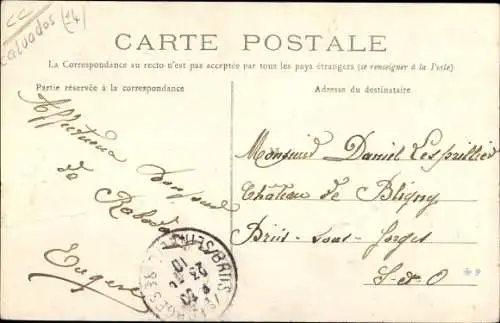 CC
Calvados (14)
CARTE POSTALE
La Correspondance au recto n'est pas acceptée par tous les pays étrangers (se renseigner à la Poste)
Partie réservée à la correspondance
Adresse du destinataire
Affectueux bonjour
de Rabodan
Eugène
Monsieur Daniel Lespiellier
Château de Bligny
Briis-sous-Forges
S-et-O